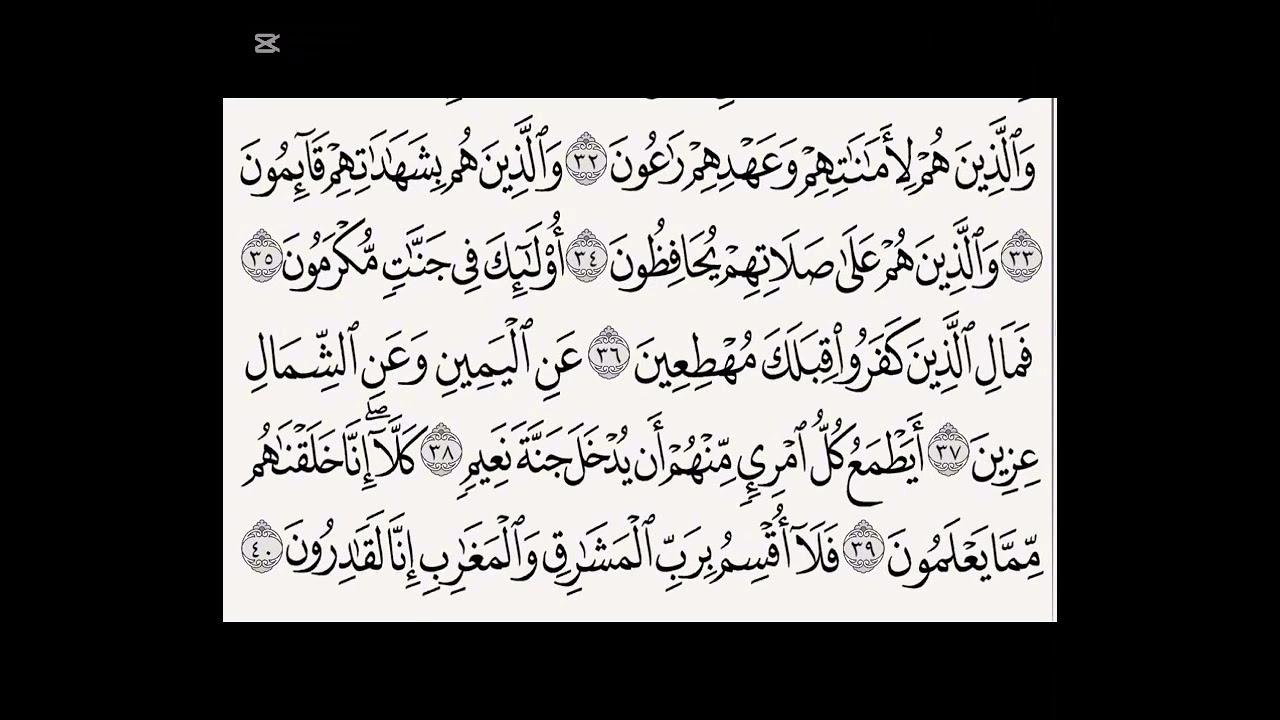 وَٱلَّذِينَ هُمْ لِأَمَٰنَٰتِهِمْ وَعَهْدِهِمْ رَٰعُونَ ٣٢ وَٱلَّذِينَ هُم بِشَهَٰدَٰتِهِمْ قَآئِمُونَ
٣٣ وَٱلَّذِينَ هُمْ عَلَىٰ صَلَاتِهِمْ يُحَافِظُونَ ٣٤ أُو۟لَٰٓئِكَ فِى جَنَّٰتٍ مُّكْرَمُونَ ٣٥
فَمَالِ ٱلَّذِينَ كَفَرُوا۟ قِبَلَكَ مُهْطِعِينَ ٣٦ عَنِ ٱلْيَمِينِ وَعَنِ ٱلشِّمَالِ
عِزِينَ ٣٧ أَيَطْمَعُ كُلُّ ٱمْرِئٍ مِّنْهُمْ أَن يُدْخَلَ جَنَّةَ نَعِيمٍ ٣٨ كَلَّآ ۖ إِنَّا خَلَقْنَٰهُم
مِّمَّا يَعْلَمُونَ ٣٩ فَلَآ أُقْسِمُ بِرَبِّ ٱلْمَشَٰرِقِ وَٱلْمَغَٰرِبِ إِنَّا لَقَٰدِرُونَ ٤٠